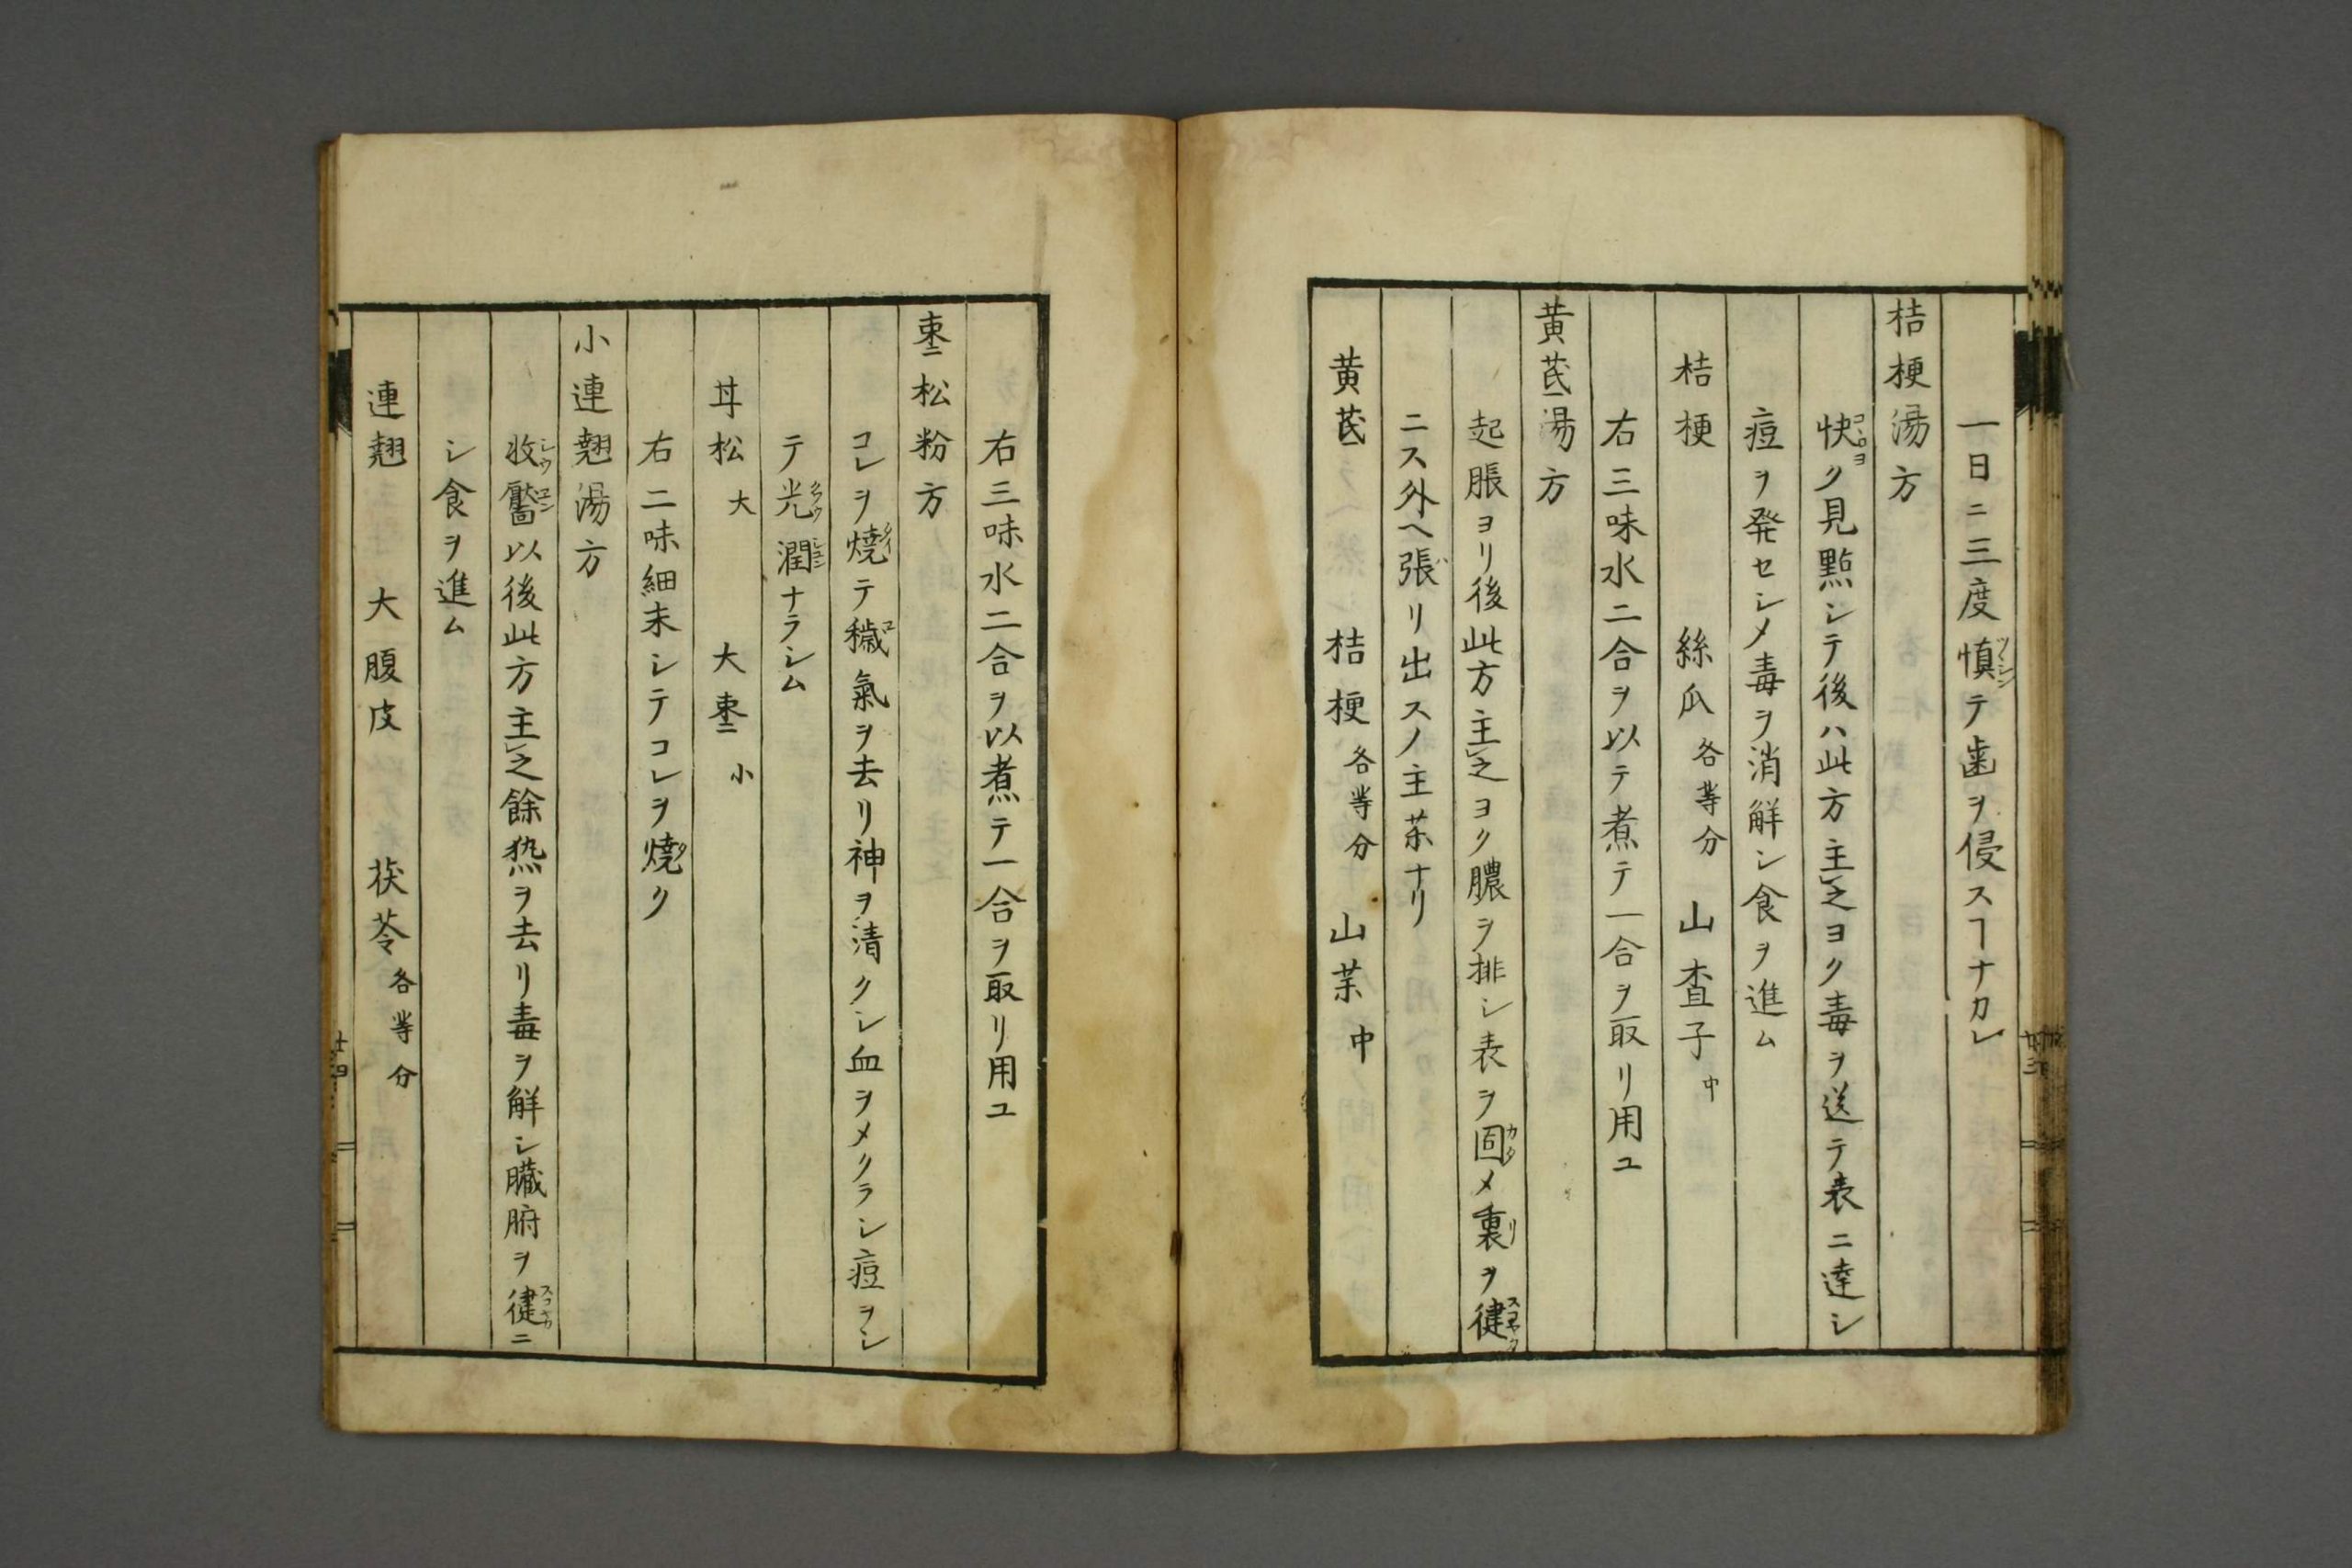 一日ニ三度慎テ歯ヲ侵スヿナカレ
桔梗湯方
快ク見點シテ後ハ此方主之ヨク毒ヲ送テ表ニ達シ
痘ヲ発セシメ毒ヲ消解シ食ヲ進ム
桔梗 絲瓜各等分 山査子中
右三味水二合ヲ以テ煮テ一合ヲ取リ用ユ
黄芪湯方
起脹ヨリ後此方主之ヨク膿ヲ排シ表ヲ固メ裏ヲ健
ニス外ヘ張リ出スノ主茱ナリ
黄芪 桔梗各等分 山茱中
右三味水二合ヲ以煮テ一合ヲ取リ用ユ
棗松粉方
コレヲ焼テ穢氣ヲ去リ神ヲ清クシ血ヲメクラシ痘ヲシ
テ光潤ナラシム
丼松大 大棗小
右二味細末シテコレヲ焼ク
小連翹湯方
收靨以後此方主之餘热ヲ去リ毒ヲ解シ臓腑ヲ健ニ
シ食ヲ進ム
連翹 大腹皮 茯苓各等分